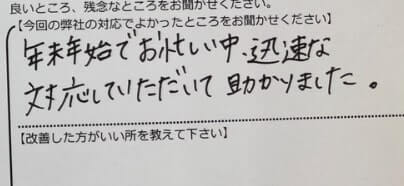 良いところ、残念なところをお聞かせください。
【今回の弊社の対応でよかったところをお聞かせください】
年末年始でお忙しい中、迅速な
対応していただいて助かりました。
【改善した方がいい所を教えて下さい】